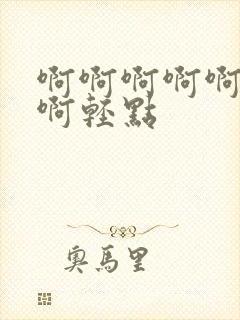 啊啊啊啊啊
啊輕點
奧馬里